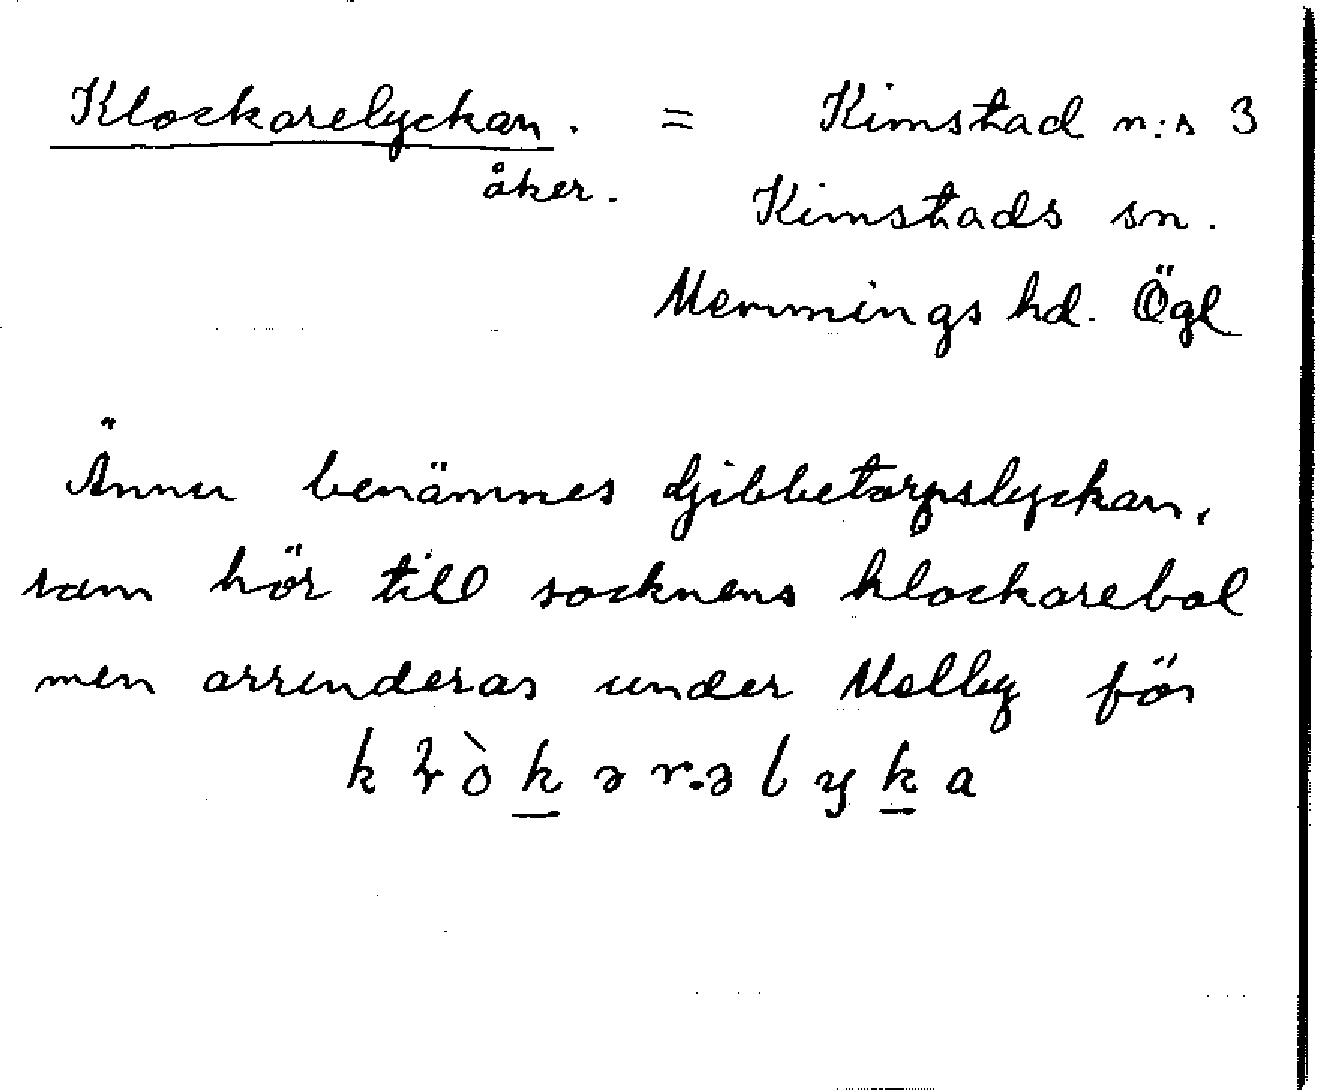 Klockarelyckan. = Kimstad n:s 3
åker. Kimstads sn.
Memmings hd. Ögl
Ännu benämnes djibbetorpslyckan,
som hör till socknens klockarebol
men arrenderas under Melby för